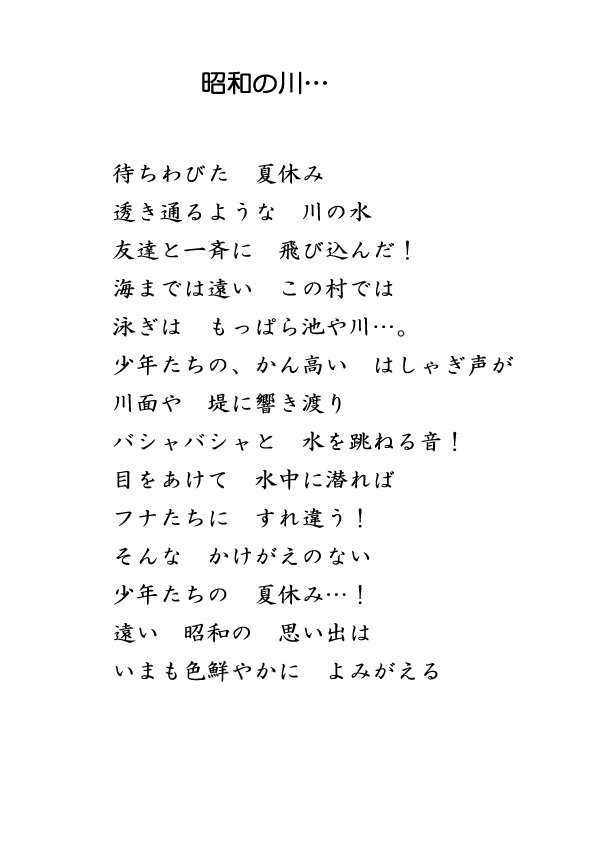 昭和の川…
待ちわびた　夏休み
透き通るような　川の水
友達と一斉に　飛び込んだ！
海までは遠い　この村では
泳ぎは　もっぱら池や川…。
少年たちの、かん高い　はしゃぎ声が
川面や　堤に響き渡り
バシャバシャと　水を跳ねる音！
目をあけて　水中に潜れば
フナたちに　すれ違う！
そんな　かけがえのない
少年たちの　夏休み…！
遠い　昭和の　思い出は
いまも色鮮やかに　よみがえる